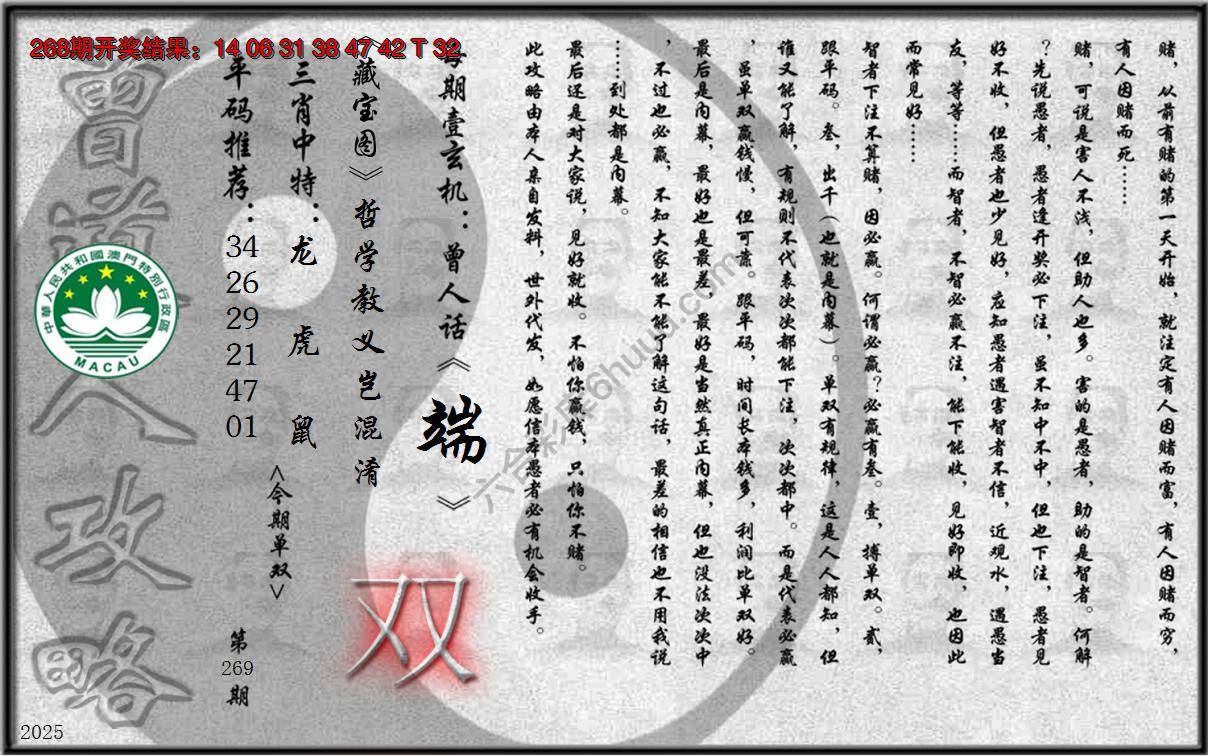 268期开奖结果：14 06 31 38 47 42 T 32
赌，从前有赌的第一天开始，就注定有人因赌而富，有人因赌而穷，
有人因赌而死……
赌，可说是害人不浅，但助人也多。害的是愚者，助的是智者。何解
？先说愚者，愚者逢开奖必下注，虽不知中不中，但也下注，愚者见
好不收，但愚者也少见好，应知愚者遇害智者不信，近观水，遇愚当
友，等等……而智者，不智必赢不注，能下能收，见好即收，也因此
而常见好……
智者下注不算赌，因必赢。何谓必赢？必赢有叁。壹，搏单双。贰，
跟平码。叁，出千（也就是内幕）。单双有规律，这是人人都知，但
谁又能了解，有规则不代表次次都能下注，次次都中。而是代表必赢
，虽单双赢钱慢，但可靠。跟平码，时间长本钱多，利润比单双好。
最后是内幕，最好也是最差，最好是当然真正内幕，但也没法次次中
，不过也必赢，不知大家能不能了解这句话，最差的相信也不用我说
……到处都是内幕。
最后还是对大家说，见好就收。不怕你赢钱，只怕你不赌。
此攻略由本人亲自发料，世外代发，如愿信本愚者必有机会收手。
每期壹玄机：曾人话《端》
《藏宝图》哲学教义岂混淆
三肖中特：龙 虎 鼠
平码推荐：34 26 29 21 47 01
<今期单双>
双
第269期
曾道人攻略
中華人民共和國澳門特別行政區
MACAU
2025
六合彩库6huuu.com